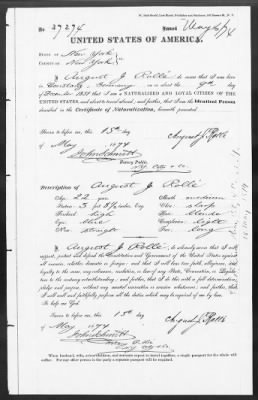 No. 37274 Issued May 16/74
UNITED STATES OF AMERICA.
STATE OF New York
COUNTY OF New York
I, August J. Rolle do swear that I was born
in Germany, on or about the 9th day
of 1851 that I am a NATURALIZED AND LOYAL CITIZEN OF THE
UNITED STATES, and about to travel abroad; and further, that I am the Identical Person
described in the Certificate of Naturalization, herewith presented.
Sworn to before me, this 15th day
of May 1874
August J. Rolle
Notary Public,
Description of August J. Rolle
Age: 22 years
Mouth: medium
Stature: 5 ft 8½ inches, Eng.
Chin:
Forehead: high
Hair: blonde
Eyes: blue
Complexion: light
Nose: straight
Face: long
I, August J. Rolle do solemnly swear that I will
support, protect and defend the Constitution and Government of the United States against
all enemies, whether domestic or foreign; and that I will bear true faith, allegiance, and
loyalty to the same, any ordinance, resolution, or law of any State, Convention, or Legisla-
ture to the contrary notwithstanding; and further, that I do this with a full determination,
pledge and purpose, without any mental reservation or evasion whatsoever; and further, that
I will well and faithfully perform all the duties which may be required of me by law.
So help me God.
Sworn to before me, this 15th day
of May 1874
August J. Rolle
When husband, wife, minor children, and servants expect to travel together, a single passport for the whole will
suffice. For any other person in the party a separate passport will be required.